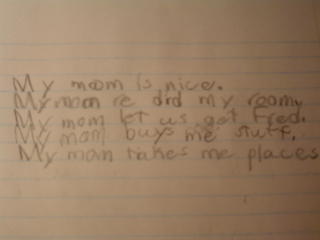 My mom is nice.
My mom re did my room.
My mom let us get Fred.
My mom buys me stuff.
My mom takes me places